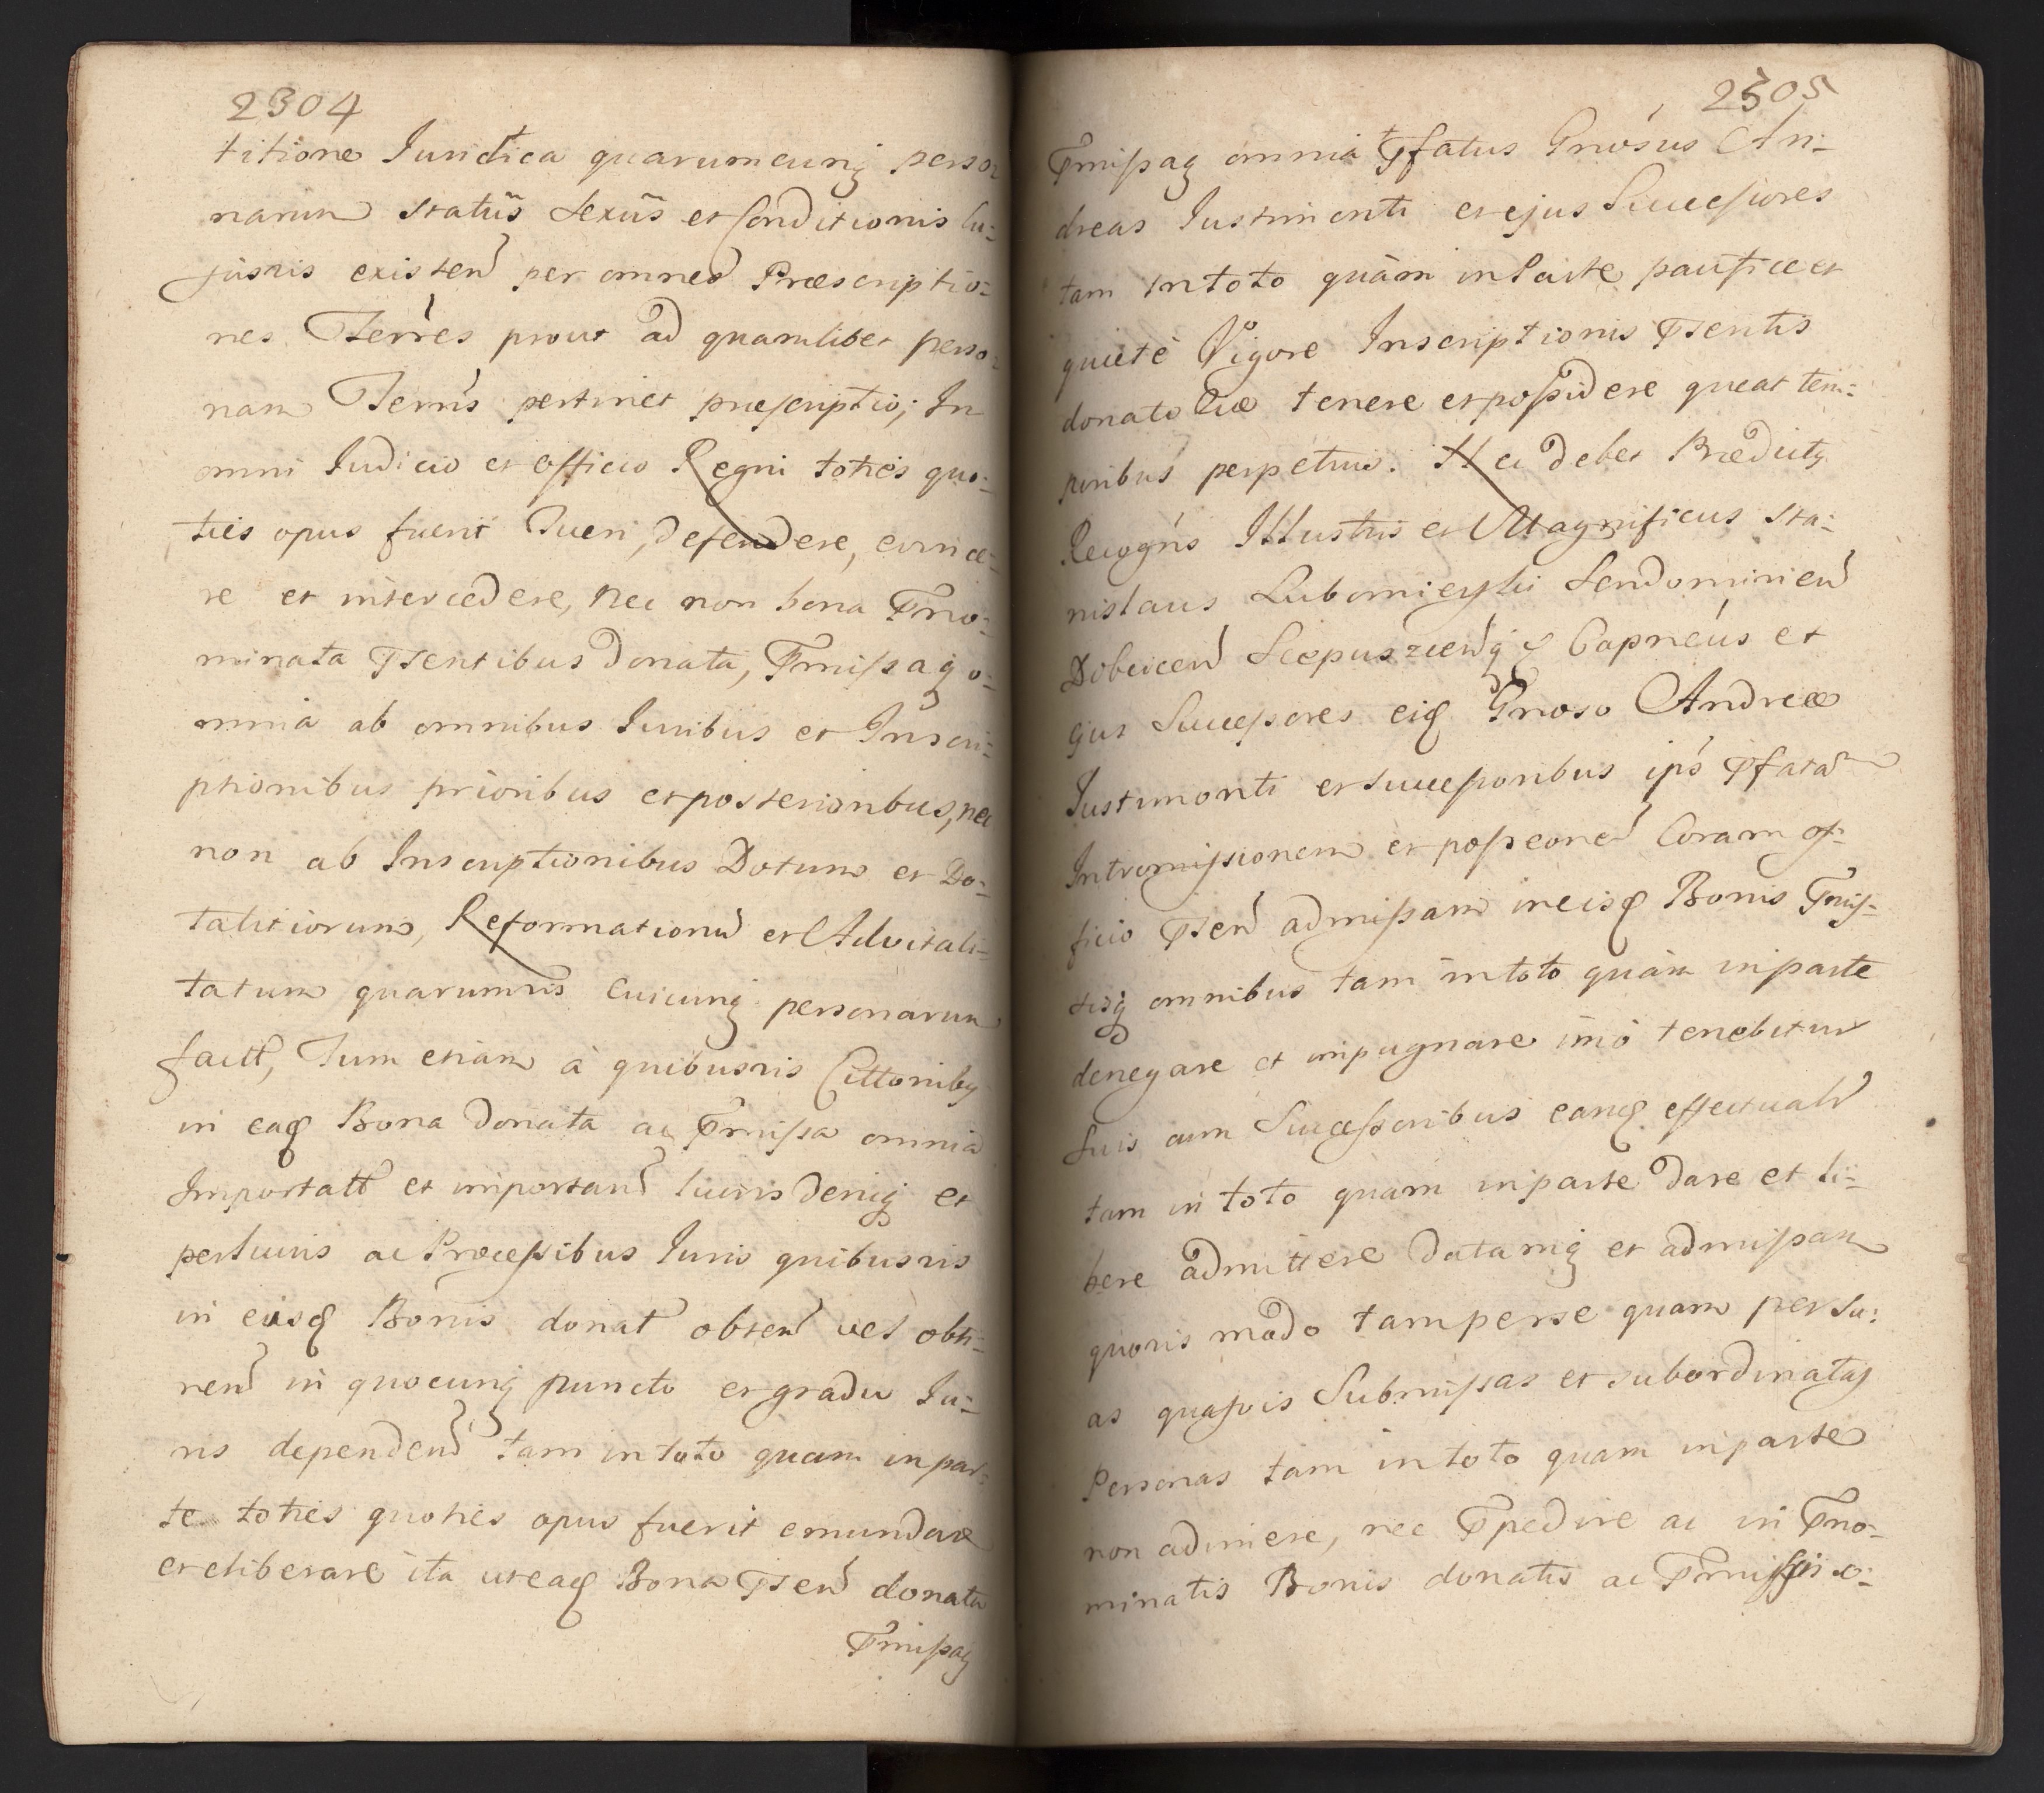 2304
titione Juridica quarumcunq perso
narum status sexus et Conditionis cu=
jusvis existen per omnes Præscriptio=
nes Terres prout ad quamlibet perso
nam Terris pertinet præscriptio; In
omni Judicio et officio Regni toties quo=
ties opus fuerit Tueri, defendere, evince=
re et intercedere, nec non bona Prno=
minata Psentibus donata, Pmissaq o=
mnia ab omnibus Juribus et Inscri=
ptionibus prioribus et posterioribus, nec
non ab Inscriptionibus Dotum et Do=
talitiorum, Reformationu et Advitali=
tatum quarumvis cuicunq personarum
factt, Tum etiam à quibusvis
in eaq Bona donata ac Pmissa omnia
Importatt et importand Juris deniq et
perlucris ac Processibus Juris quibusvis
in eisq Bonis donat obten vel obti=
nend in quocunq puncto et gradu Ju=
ris dependen tam in toto quam in par=
te toties quoties opus fuerit emundare
et eliberare ita ut eaq Bona Psen donata
Pmissaq
2305
Pmissaq omnia Pfatus Gnosus An=
dreas Justimonti et ejus Successores
tam in toto quàm in Parte pacifice et
quietè Vigore Inscriptionis Psentis
donato tenere et possidere queat tem=
poribus perpetuis. Nec debet Prædictq
Recogns Illustris et Magnificus Sta=
nislaus Lubomirski Sendomirien
Dobcicen Scepuszienq Capneus et
ejus Successores eiq Gnoso Andreæ
Justimonti et successoribus ips Pfata
Intromissionem et possesone Coram of=
ficio Psen admissam in eisq Bonis Pmis=
sisq omnibus tam in toto quàm in parte
denegare et impugnare imò tenebitur
suis cum Successoribus eanq effectualr
tam in toto quàm in parte dare et li=
bere admittere datamq et admissam
quovis modo tam per se quam per su=
as quasvis Submissas et subordinatas
Personas tam in toto quam in parte
non adimere, nec Ppedire ac in Prno=
minatis Bonis donatis ac Pmissis o=